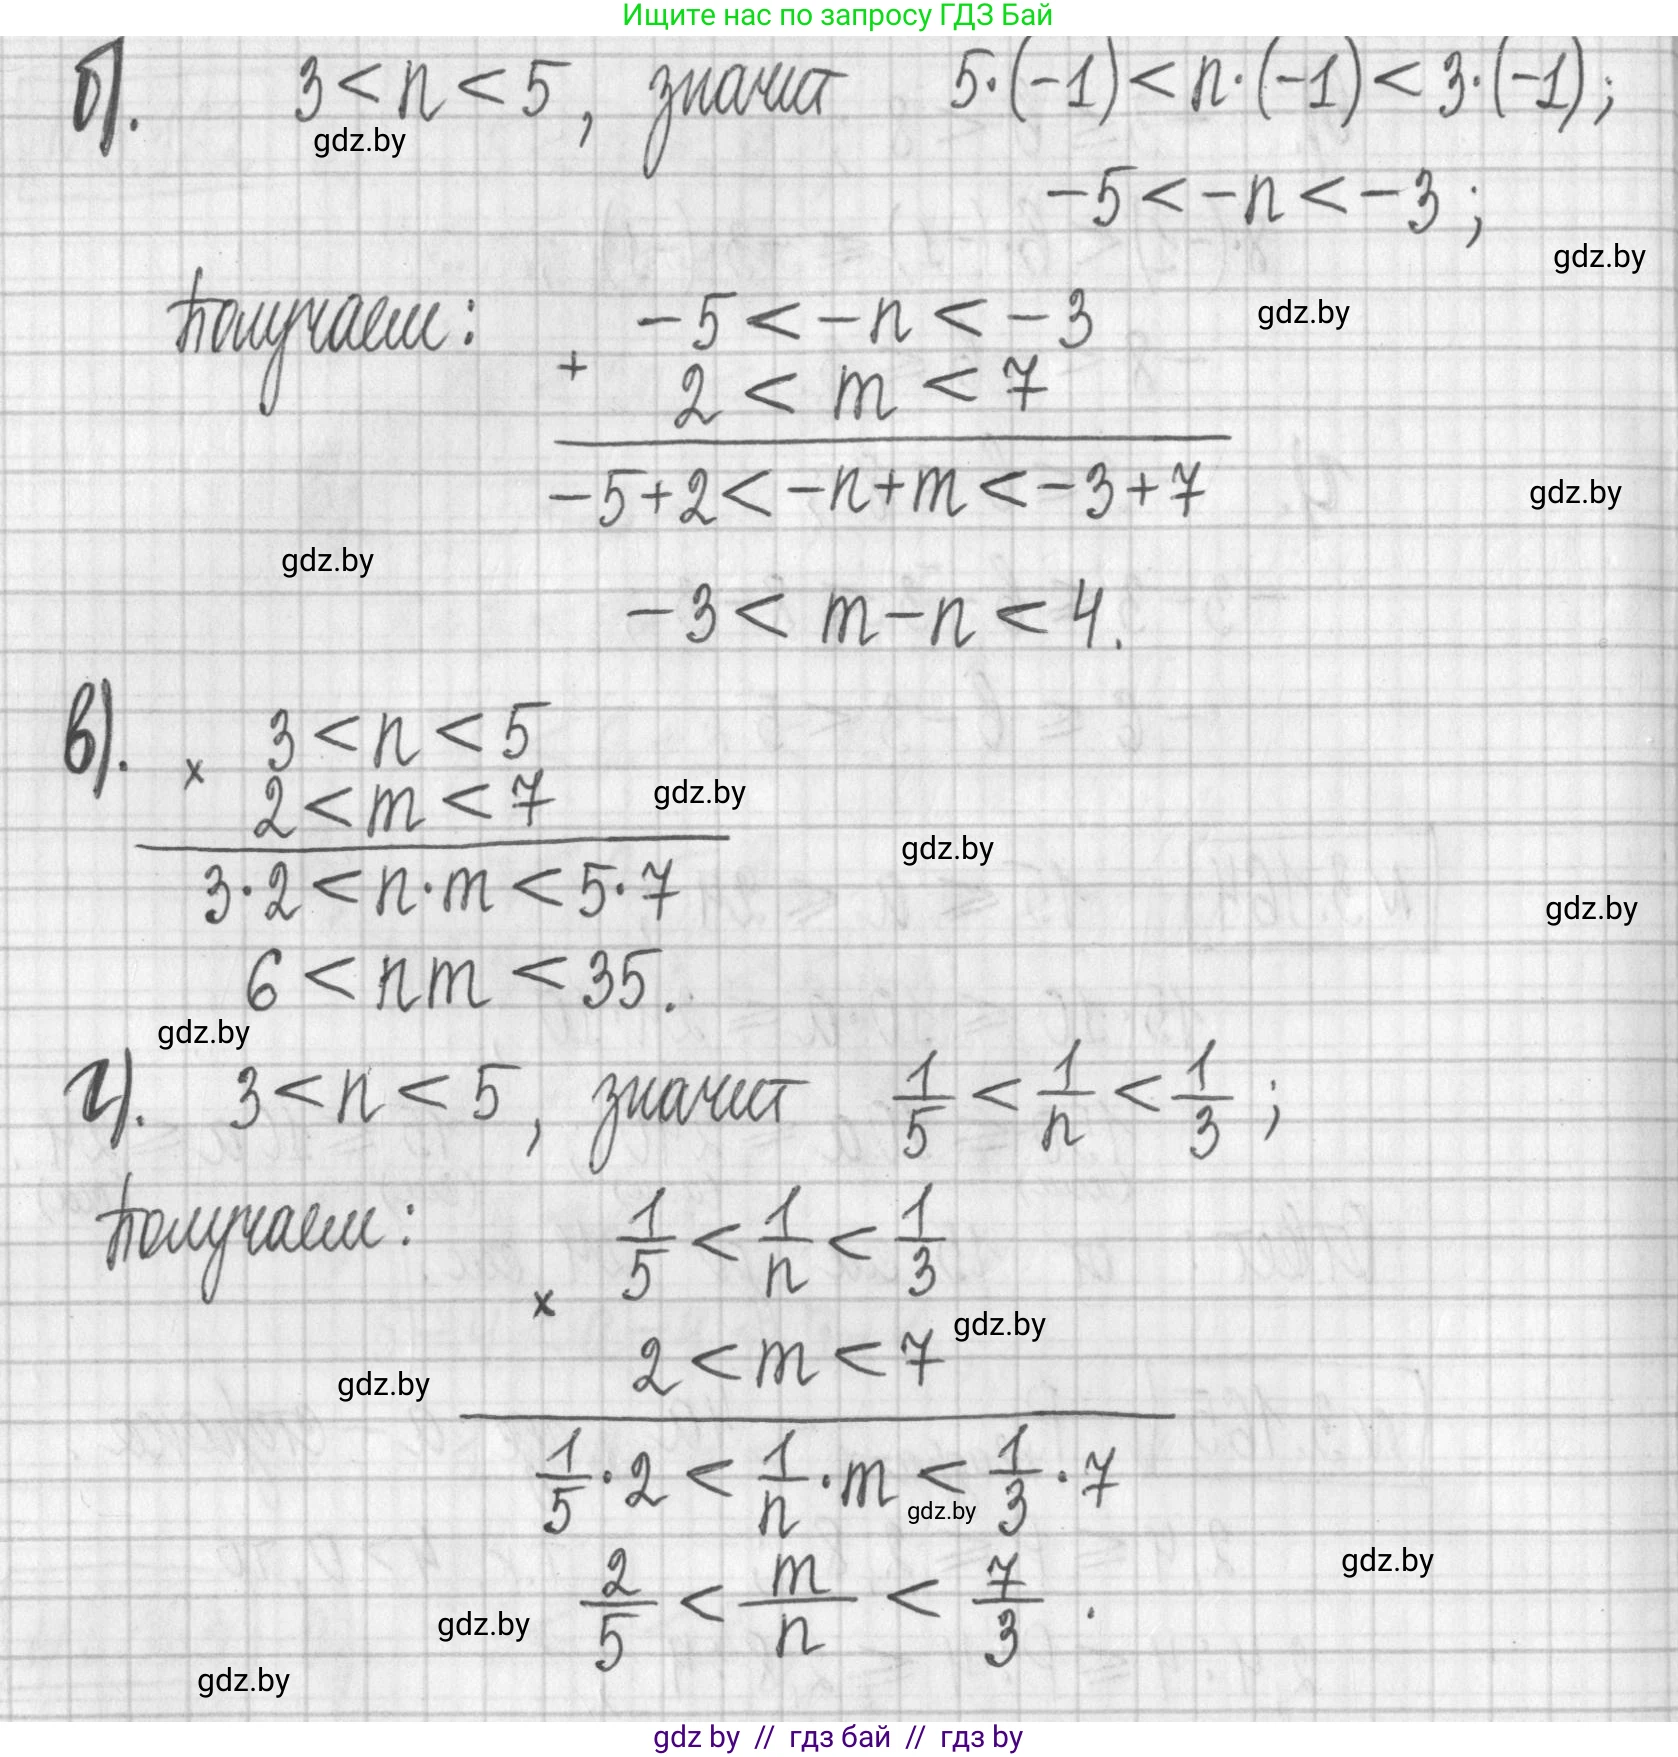 Ищите нас по запросу ГДЗ Бай
б). 3 < n < 5, значит 5·(-1) < n·(-1) < 3·(-1);
gdz.by
-5 < -n < -3;
gdz.by
Получаем: -5 < -n < -3
gdz.by
+ 2 < m < 7
-5+2 < -n+m < -3+7
gdz.by
gdz.by
-3 < m-n < 4.
в). 3 < n < 5
× 2 < m < 7
gdz.by
gdz.by
3·2 < n·m < 5·7
gdz.by
6 < nm < 35.
gdz.by
г). 3 < n < 5, значит 1/5 < 1/n < 1/3;
Получаем: 1/5 < 1/n < 1/3
×
gdz.by
2 < m < 7
gdz.by
1/5·2 < 1/n·m < 1/3·7
gdz.by
gdz.by
2/5 < m/n < 7/3.
gdz.by
gdz.by
gdz by // гдз бай // гдз by